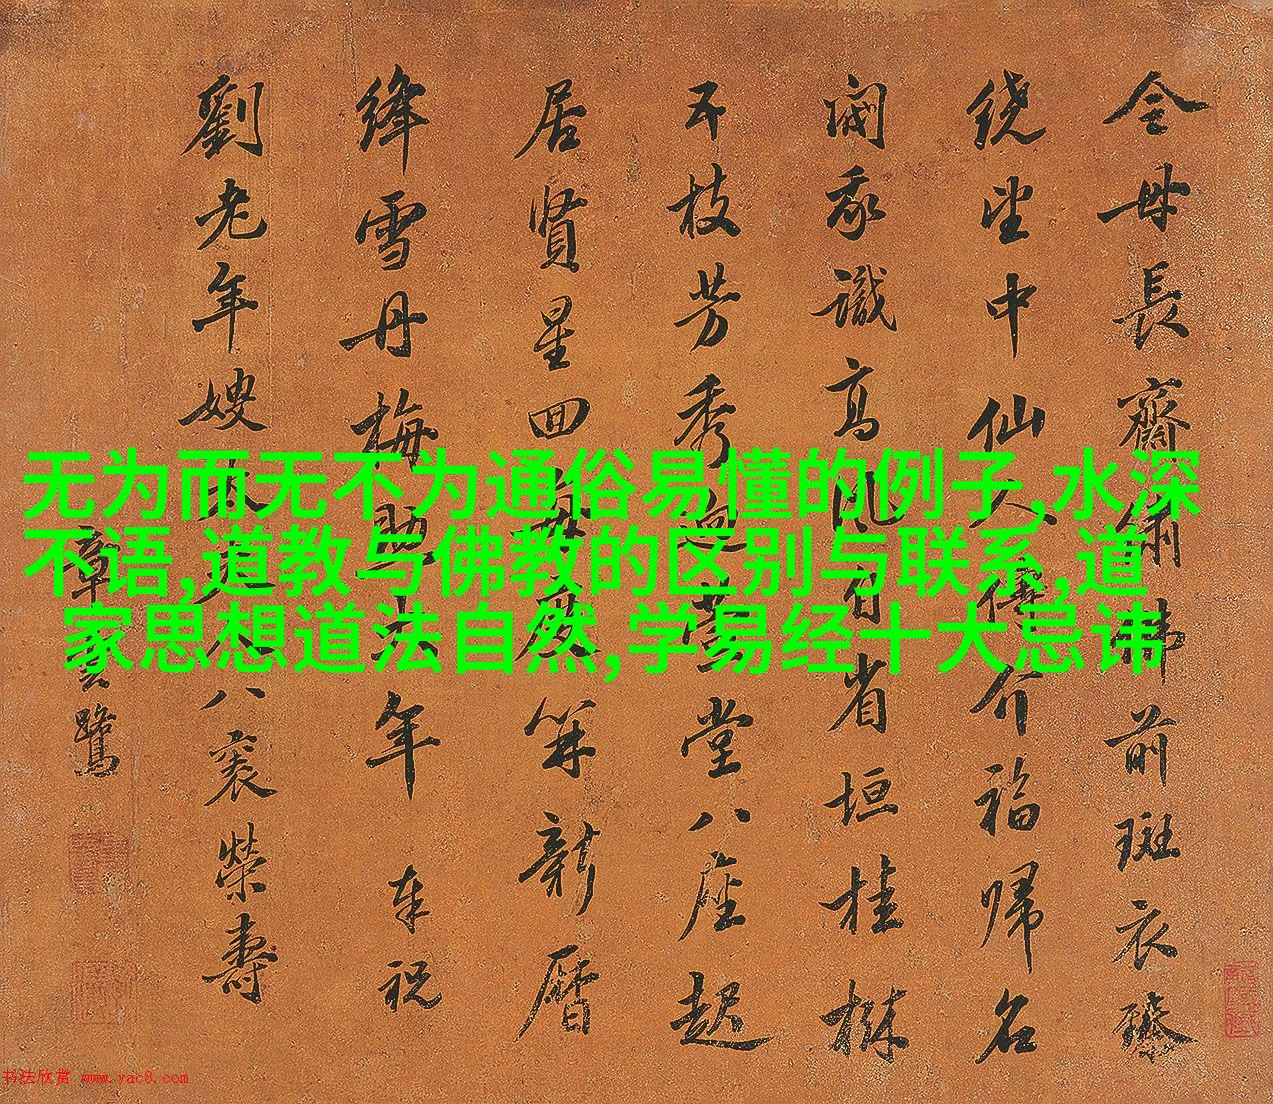 金母長齋繡佛前斑衣
繞坐中仙人傳介福歸名
閫我識高風省垣桂林
不枝芳秀迎萱堂八座起
居賢星回婺度算新曆
絳雪丹梅照大年奉祝
劉老年嫂太夫人八袠榮壽
章雲鷺
无为而无不为通俗易懂的例子,水深
不语,道教与佛教的区别与联系,道
家思想道法自然,学易经十大忌讳
书法欣赏 www.yac8.com